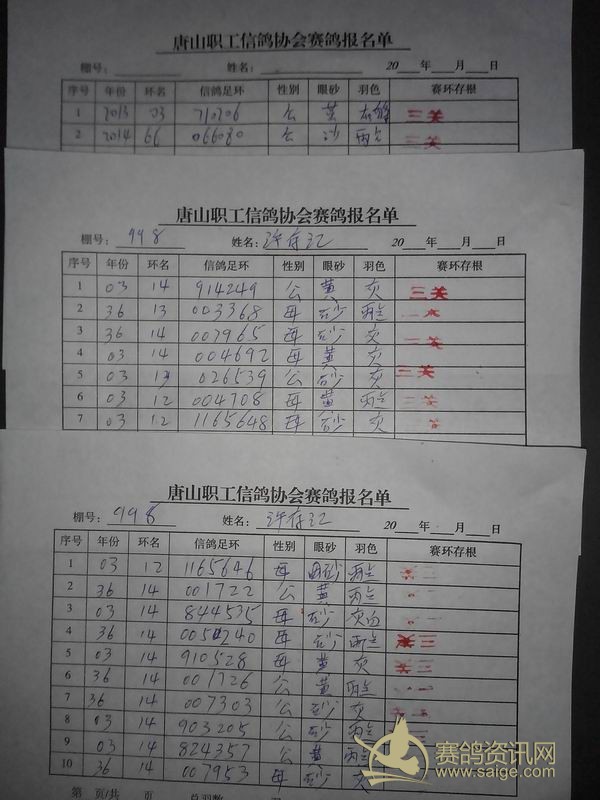 唐山职工信鸽协会赛鸽报名单
棚号: 姓名: 20 年 月 日
序号 年份 环名 信鸽足环 性别 眼砂 羽色 赛环存根
1 2013 03 710206 公 黄 三关
2 2014 66 066080 公 沙 雨点 三关
唐山职工信鸽协会赛鸽报名单
棚号: 998 姓名: 许存江 20 年 月 日
序号 年份 环名 信鸽足环 性别 眼砂 羽色 赛环存根
1 03 14 914249 公 黄 灰 三关
2 36 13 003368 母 砂 雨点
3 36 14 007965 母 砂 灰 一关
4 03 14 004692 母 黄 灰
5 03 026539 公 砂 灰 三关
6 03 12 004708 母 黄 雨点 三关
7 03 12 1165648 母 砂 灰
唐山职工信鸽协会赛鸽报名单
棚号: 998 姓名: 许存江 20 年 月 日
序号 年份 环名 信鸽足环 性别 眼砂 羽色 赛环存根
1 03 12 1165646 母 砂 雨点
2 36 14 001722 公 黄 雨点
3 03 14 844535 母 砂 灰白
4 36 14 母 砂 雨点 关三
5 03 14 910528 母 黄 灰 关三
6 36 14 001726 公 黄 雨点
7 36 14 007303 公 砂 灰
8 03 14 903205 公 砂 雨点
9 03 14 824357 公 黄 雨点
10 36 14 007953 母 砂 灰
第 页/共 页 总羽数
赛鸽资讯网
www.saige.com